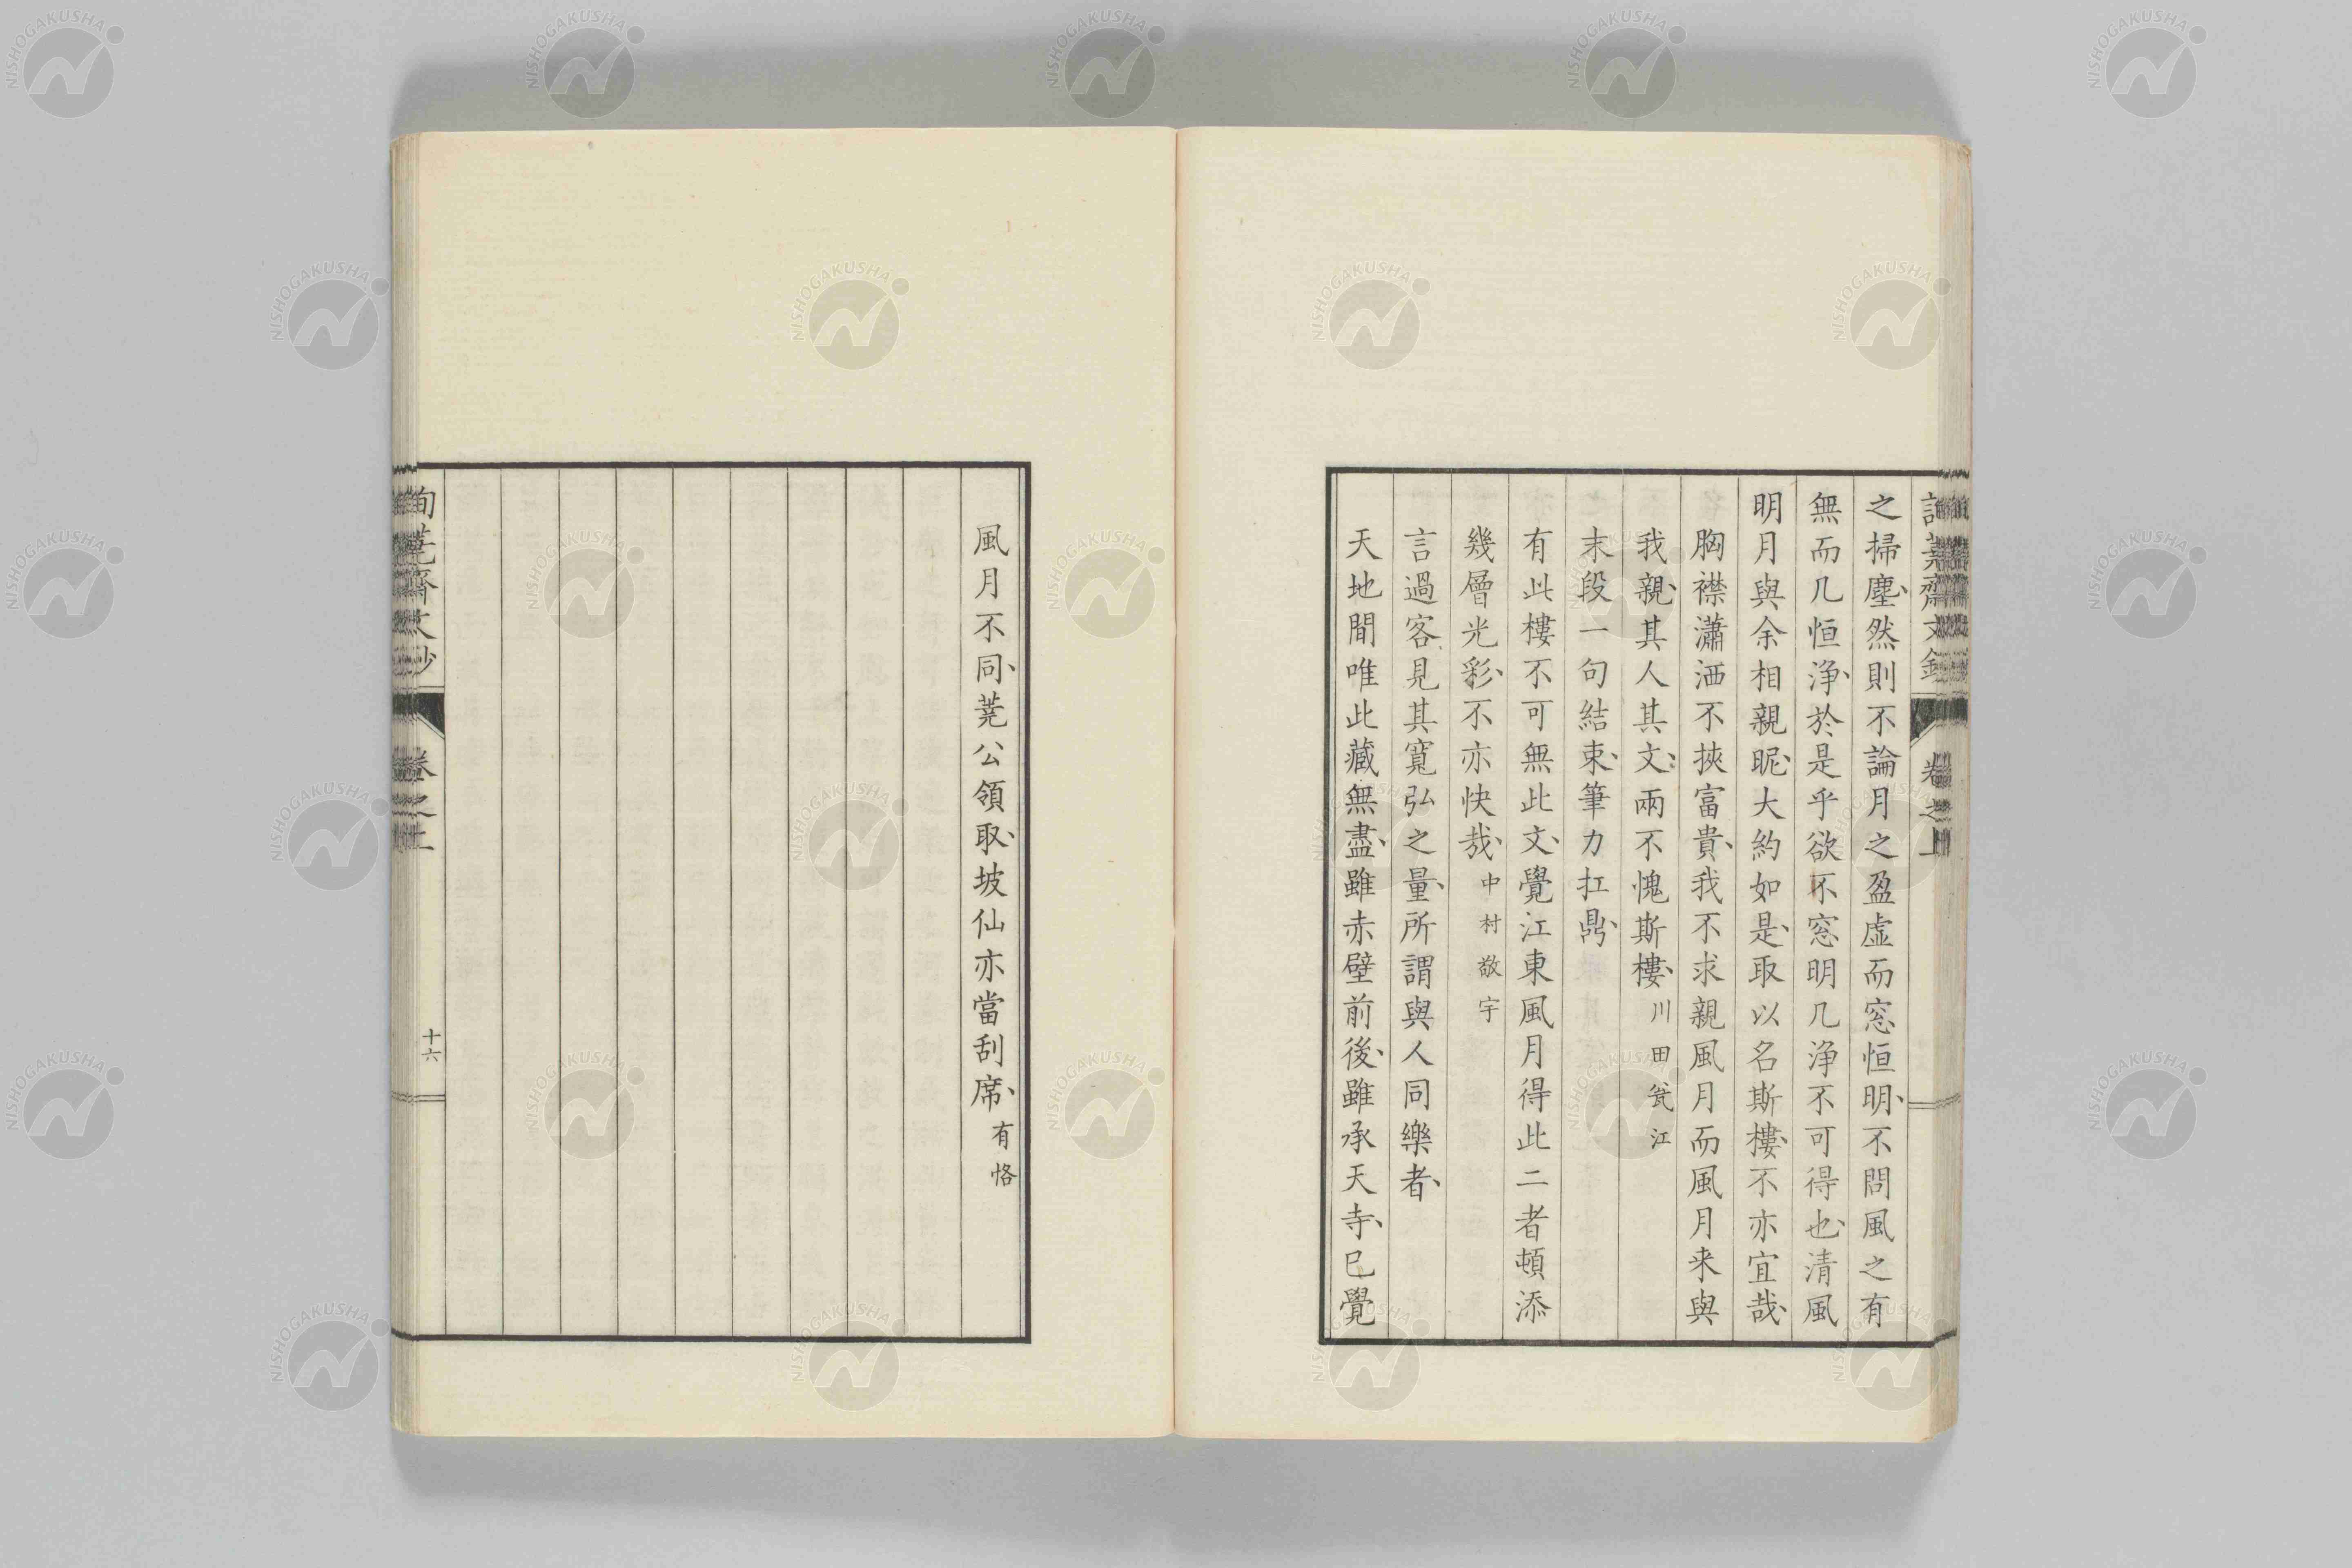 之掃塵、然則不論月之盈虛而窓恒明、不問風之有
無而几恒淨、於是乎欲不窓明几淨不可得也、清風
明月與余相親昵、大約如是、取以名斯樓、不亦宜哉、
胸襟瀟洒不挾富貴、我不求親風月而風月来與
我親、其人其文、兩不愧斯樓、川田甕江
末段一句結束、筆力扛鼎、
有此樓不可無此文、覺江東風月得此二者頓添
幾層光彩、不亦快哉、中村敬宇
言過客見其寬弘之量、所謂與人同樂者、
天地間唯此藏無盡、雖赤壁前後、雖承天寺、已覺
卷之上
風月不同、莞公領取、坡仙亦當刮席、有恪
齋文鈔
卷之上
十六
NISHOGAKUSHA